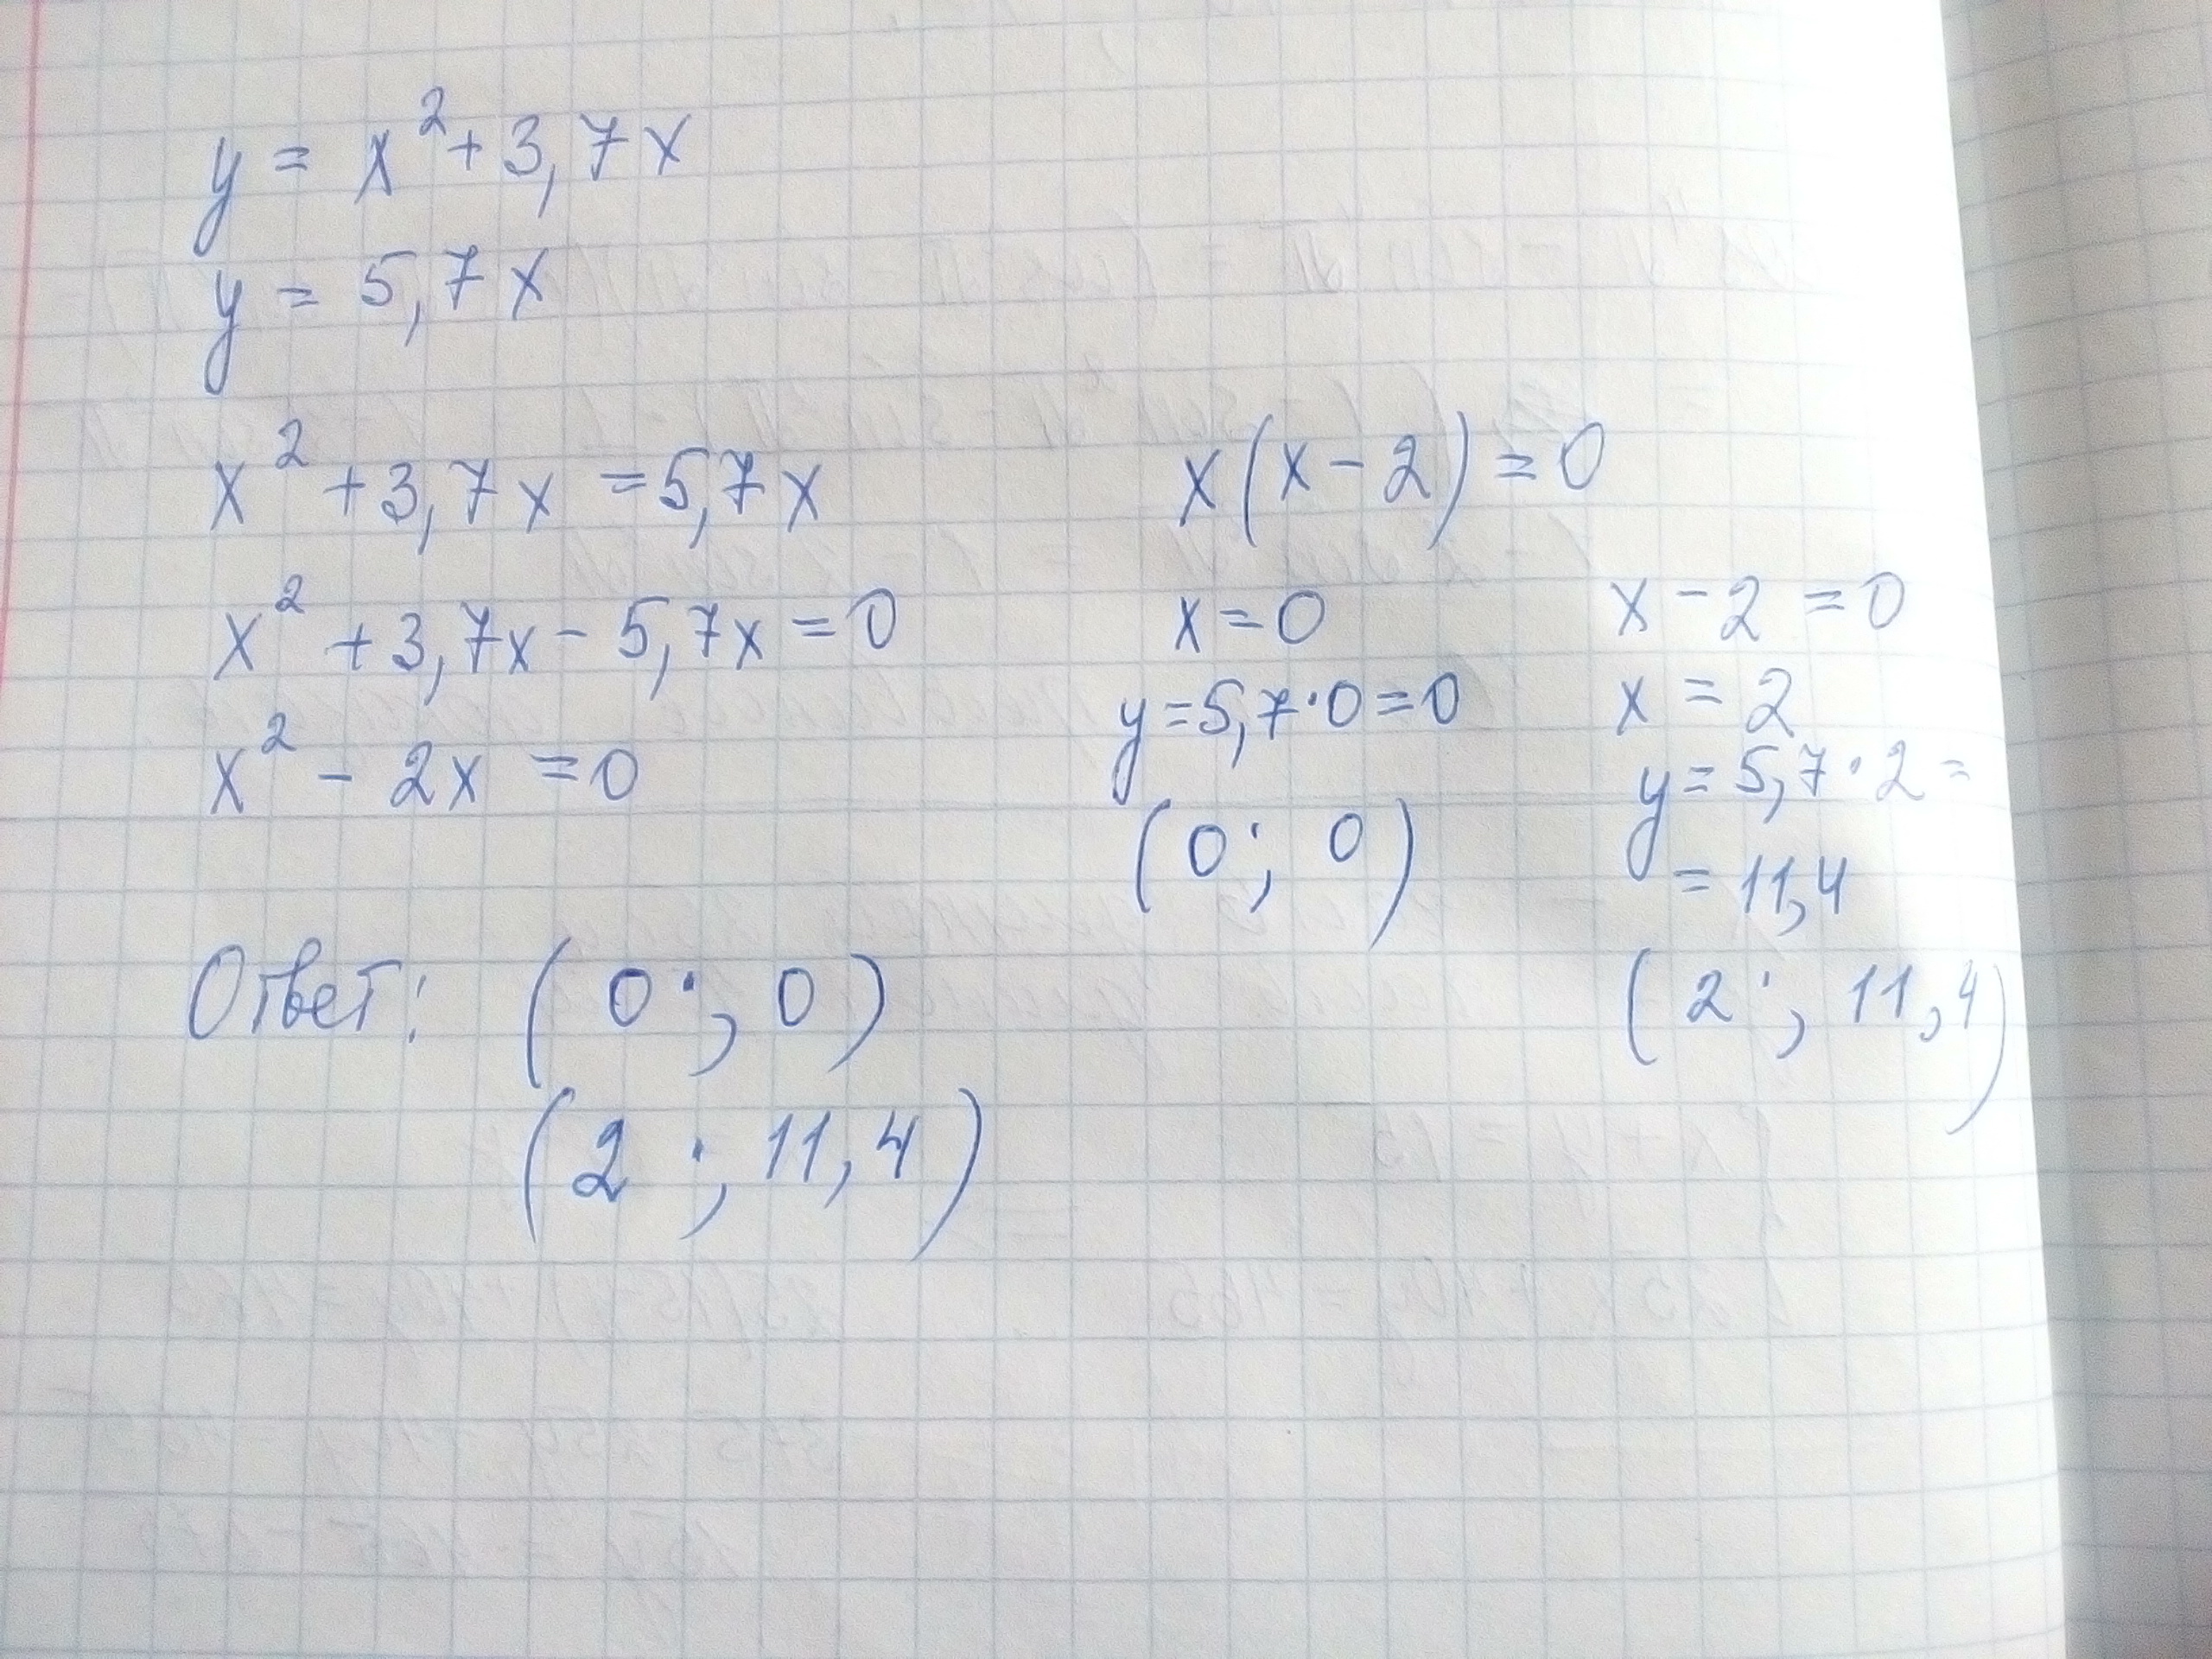 y = x² + 3,7x
y = 5,7x
x² + 3,7x = 5,7x
x² + 3,7x - 5,7x = 0
x² - 2x = 0
x(x - 2) = 0
x = 0
y = 5,7 · 0 = 0
(0; 0)
x - 2 = 0
x = 2
y = 5,7 · 2 =
= 11,4
(2; 11,4)
Ответ: (0; 0)
(2; 11,4)